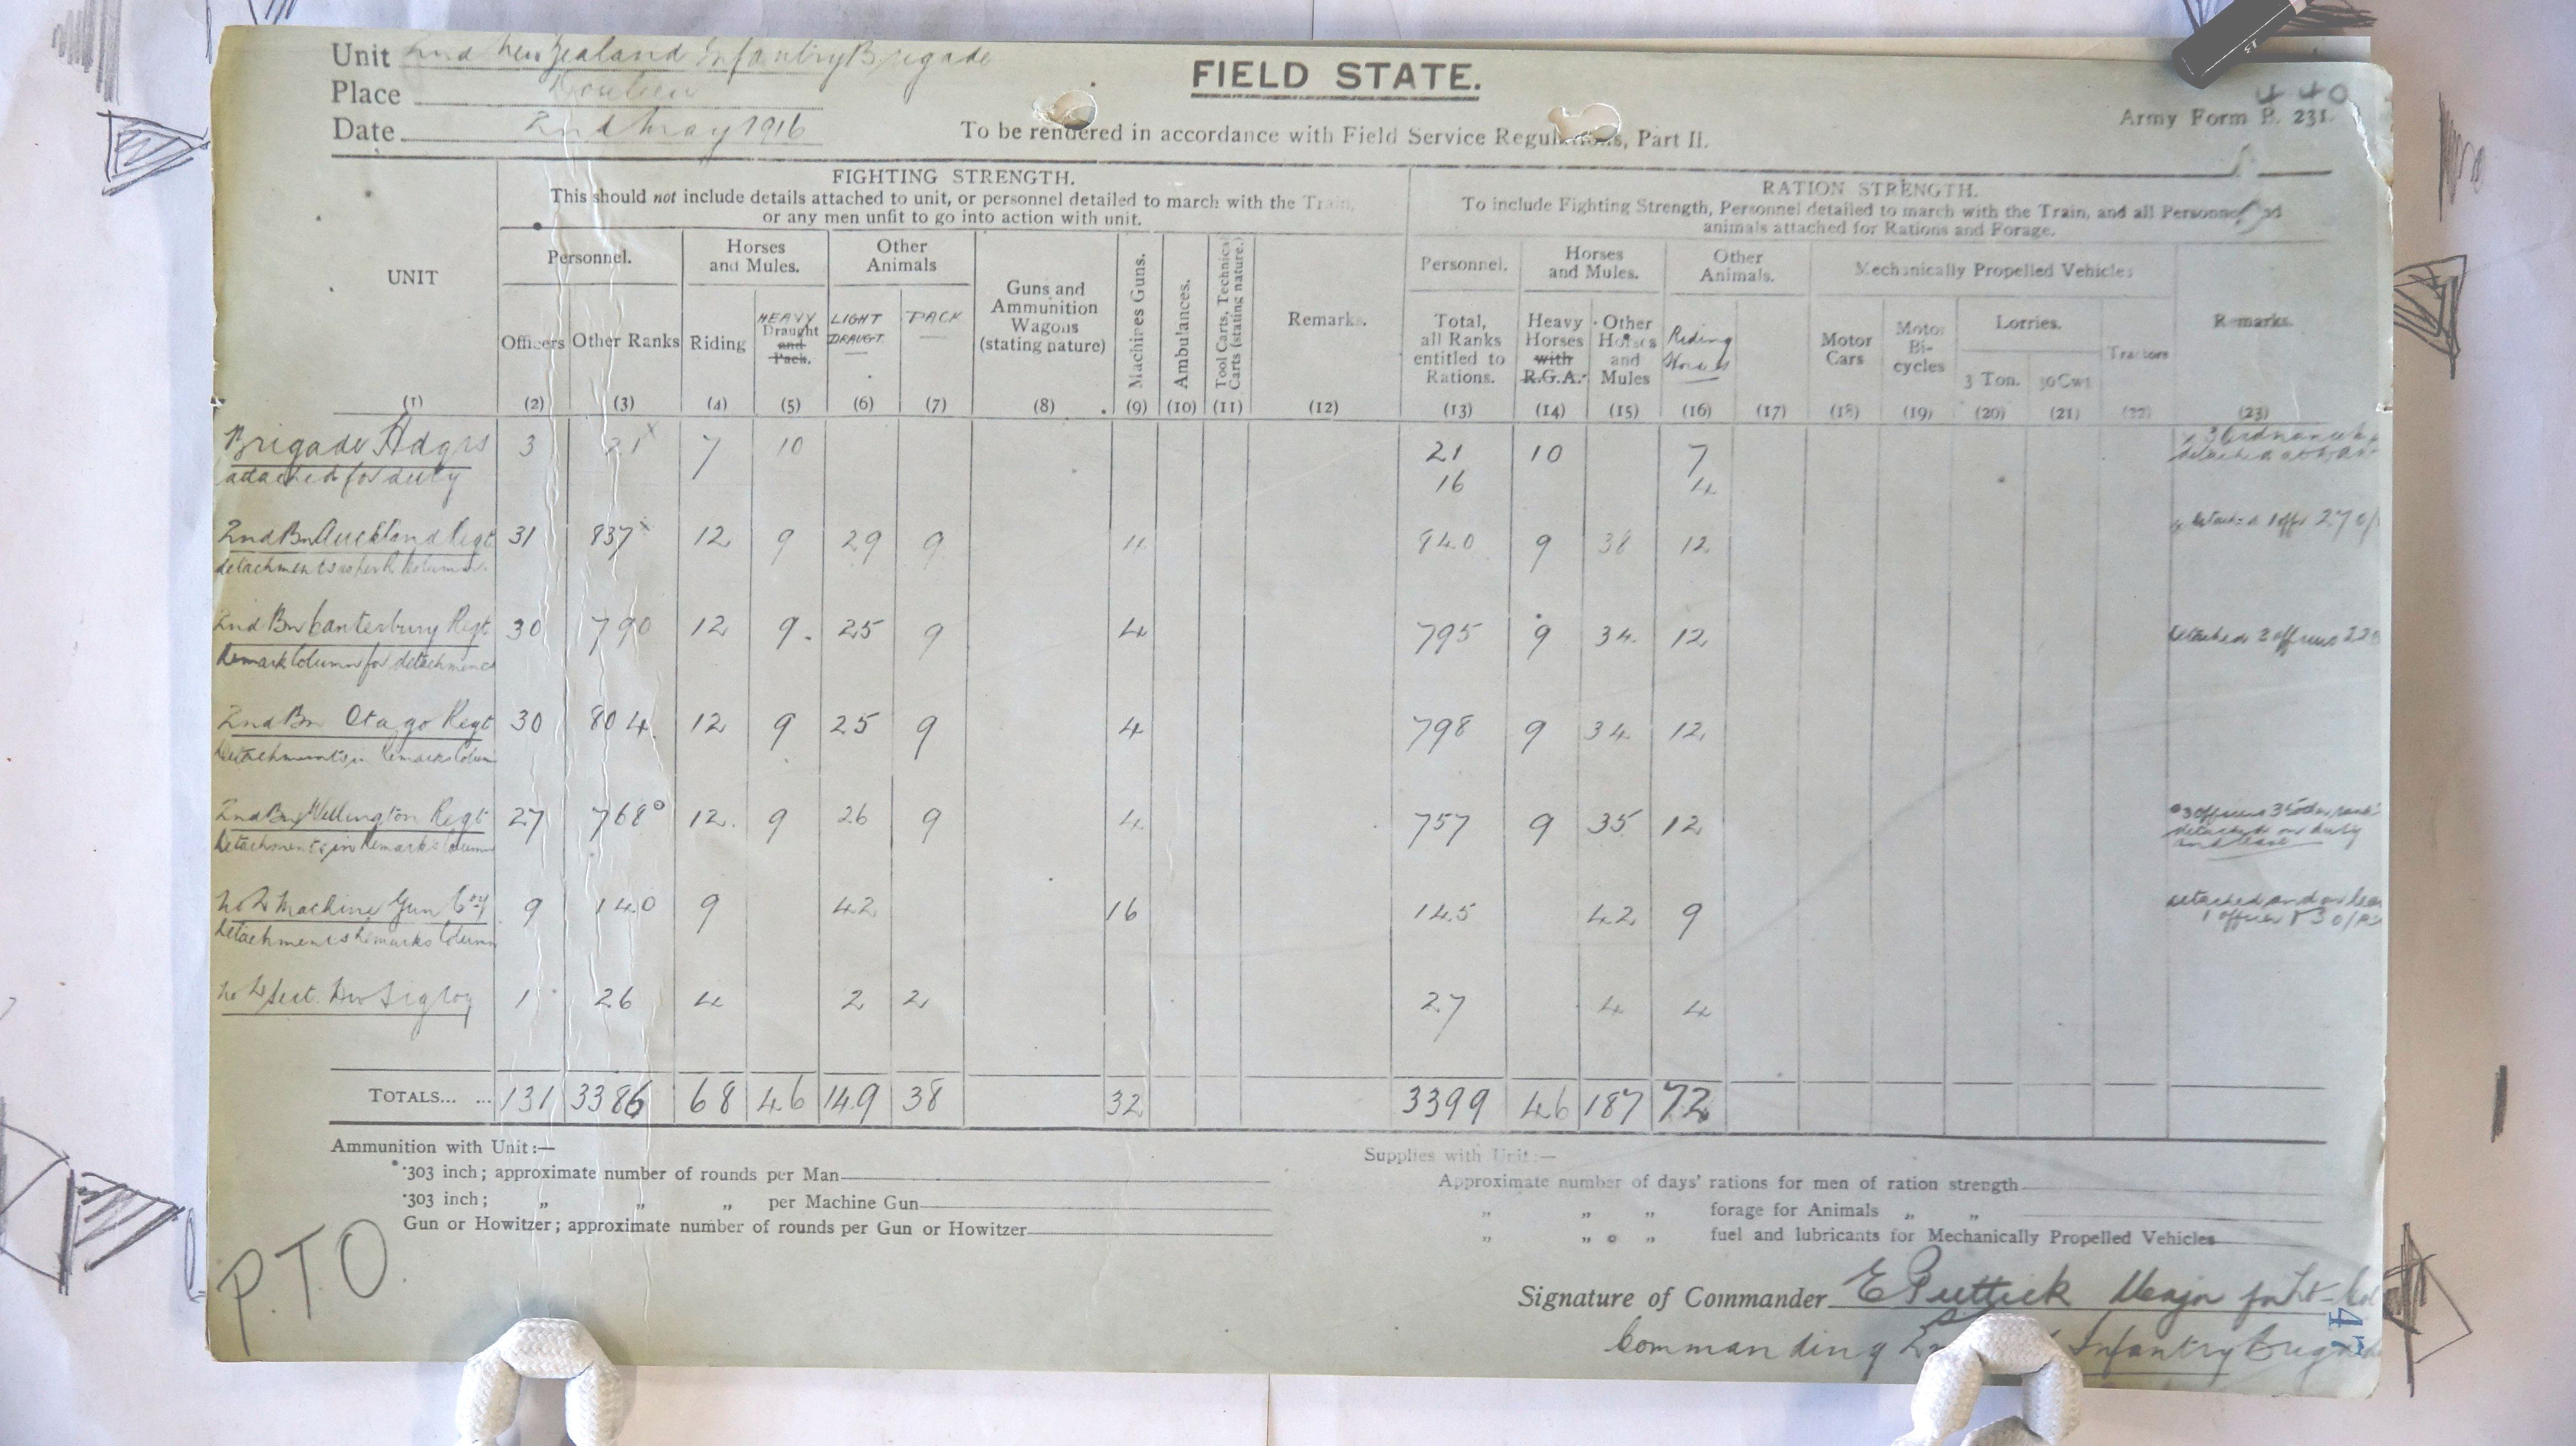 Unit 2nd New Zealand Infantry Brigade
Place Doulieu
Date 2nd May 1916
FIELD STATE.
To be rendered in accordance with Field Service Regulations, Part II.
440
Army Form B. 231.
UNIT
FIGHTING STRENGTH.
This should not include details attached to unit, or personnel detailed to march with the Train,
or any men unfit to go into action with unit.
RATION STRENGTH.
To include Fighting Strength, Personnel detailed to march with the Train, and all Personnel and
animals attached for Rations and Forage.
Personnel. Horses and Mules. Other Animals Guns and Ammunition Wagons (stating nature) Machines Guns. Ambulances. Tool Carts, Technical Carts (stating nature.) Remarks. Personnel. Horses and Mules. Other Animals. Mechanically Propelled Vehicles Remarks.
Officers Other Ranks Riding HEAVY Draught and Pack. LIGHT DRAUGT. PACK Total, all Ranks entitled to Rations. Heavy Horses with R.G.A. Other Horses and Mules Riding Horses Motor Cars Motor Bi-cycles Lorries. 3 Ton. 30 Cwt Tractors
(1) (2) (3) (4) (5) (6) (7) (8) (9) (10) (11) (12) (13) (14) (15) (16) (17) (18) (19) (20) (21) (22) (23)
Brigade Hdqrs 3 21x 7 10 21 10 7 x 3 Ordnance
attached for duty 16 4 detached
2nd Bn Auckland Regt 31 837x 12 9 29 9 4 840 9 38 12 detached 1 offr 27 o/
detachments as per R Column
2nd Bn Canterbury Regt 30 790 12 9. 25 9 4 795 9 34. 12 detached 3 officers 22
Remark Column for detachment
2nd Bn Otago Regt 30 804. 12 9 25 9 4 798 9 34 12
Detachments in Remarks Column
2nd Bn Wellington Regt 27 768° 12. 9 26 9 4 757 9 35 12 °3 officers 35 other ranks
Detachments in Remarks Column detached on duty
and leave
No 2 Machine Gun Coy 9 140 9 42 16 145 42 9 detached and on leave
Detachments Remarks Column 1 officer & 3 o/R
No 2 Sect. Div Sig Coy 1 26 4 2 2 27 4 4
TOTALS... ... 131 3386 68 46 149 38 32 3399 46 187 72
Ammunition with Unit :—
·303 inch; approximate number of rounds per Man
·303 inch; „ „ „ per Machine Gun
Gun or Howitzer; approximate number of rounds per Gun or Howitzer
Supplies with Unit :—
Approximate number of days' rations for men of ration strength
„ „ „ forage for Animals „ „
„ „ „ fuel and lubricants for Mechanically Propelled Vehicles
P.T.O.
Signature of Commander E Puttick Major for Lt-Col
Commanding Infantry Brigade
47